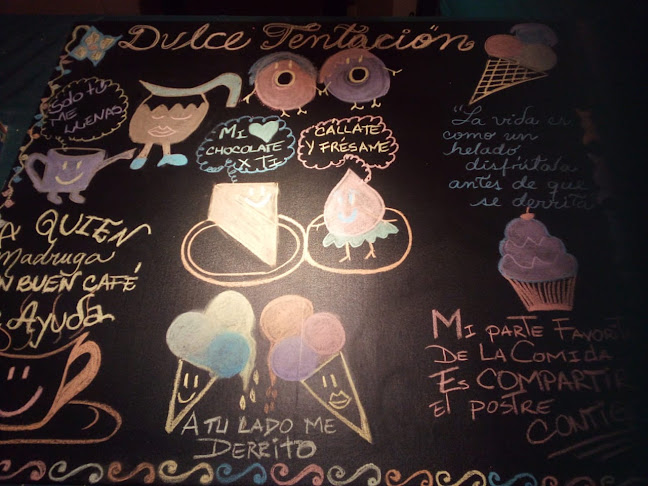 Dulce Tentación
Solo tú
ME
LLENAS
MI
CHOCOLATE
X TI
CÁLLATE
Y FRÉSAME
"La vida es
como un
helado
disfrútala
antes de que
se derrita
A QUIEN
Madruga
BUEN CAFÉ
Ayuda
MI PARTE FAVORIT
DE LA COMIDA
ES COMPARTIR
El POSTRE
CONTIG
A TU LADO ME
DERRITO